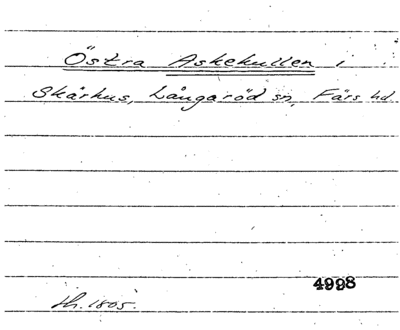 Östra Askekullen i
Skårhus, Långaröd sn, Färs hd
4998
sh. 1805.